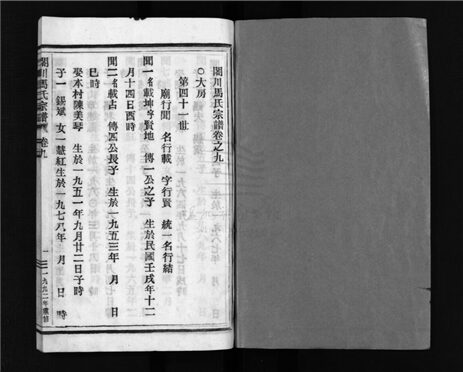 闍川馬氏宗譜卷之九
○大房
第四十一世
廟行聞　名行載　字行賢　統一名行結
聞一名載坤字賢地　傳一公之子　生於民國壬戌年十二
月十四日酉時
聞二名載占　傳四公長子　生於一九五三年　月　日
巳時
娶本村陳美琴　生於一九五一年九月廿二日子時
子一　錫斌　女一　慧紅生於一九七八年　月　日　時
馬氏宗譜　卷九
一　一九九二年重修